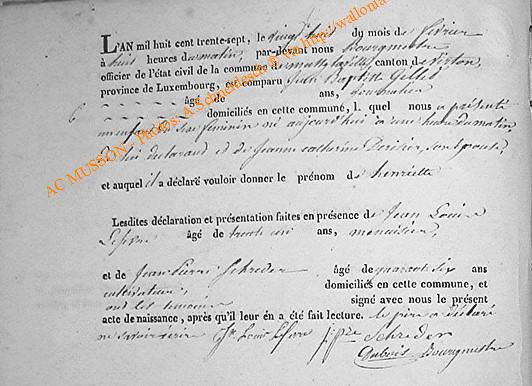 L'AN mil huit cent trente-sept, le vingt huit du mois de février
à huit heures du matin, par-devant nous Bourgmestre
officier de l'état civil de la commune de canton de Virton,
province de Luxembourg, est comparu Jean Baptiste Gillet
âgé de ans,
domiciliés en cette commune, l quel nous a présenté
un enfant du sexe féminin né aujourd'hui à une heure du matin
de lui déclarant et de Jeanne catherine son épouse,
et auquel il a déclaré vouloir donner le prénom de henriette
Lesdites déclaration et présentation faites en présence de Jean Louis
Lefevre âgé de trente ans, menuisier,
et de Jean Pierre Schreder âgé de quarante six ans
cultivateur, domiciliés en cette commune, et
ont les témoins signé avec nous le présent
acte de naissance, après qu'il leur en a été fait lecture. le père a déclaré
ne savoir écrire Jn Louis Lefevre j: pre Schreder
Dubois Bourgmestre
AC MUSSON - Photos: A.Schneider sur via http://wallonia